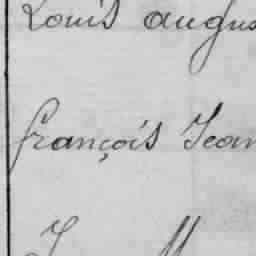 Louis augus
françois Jean